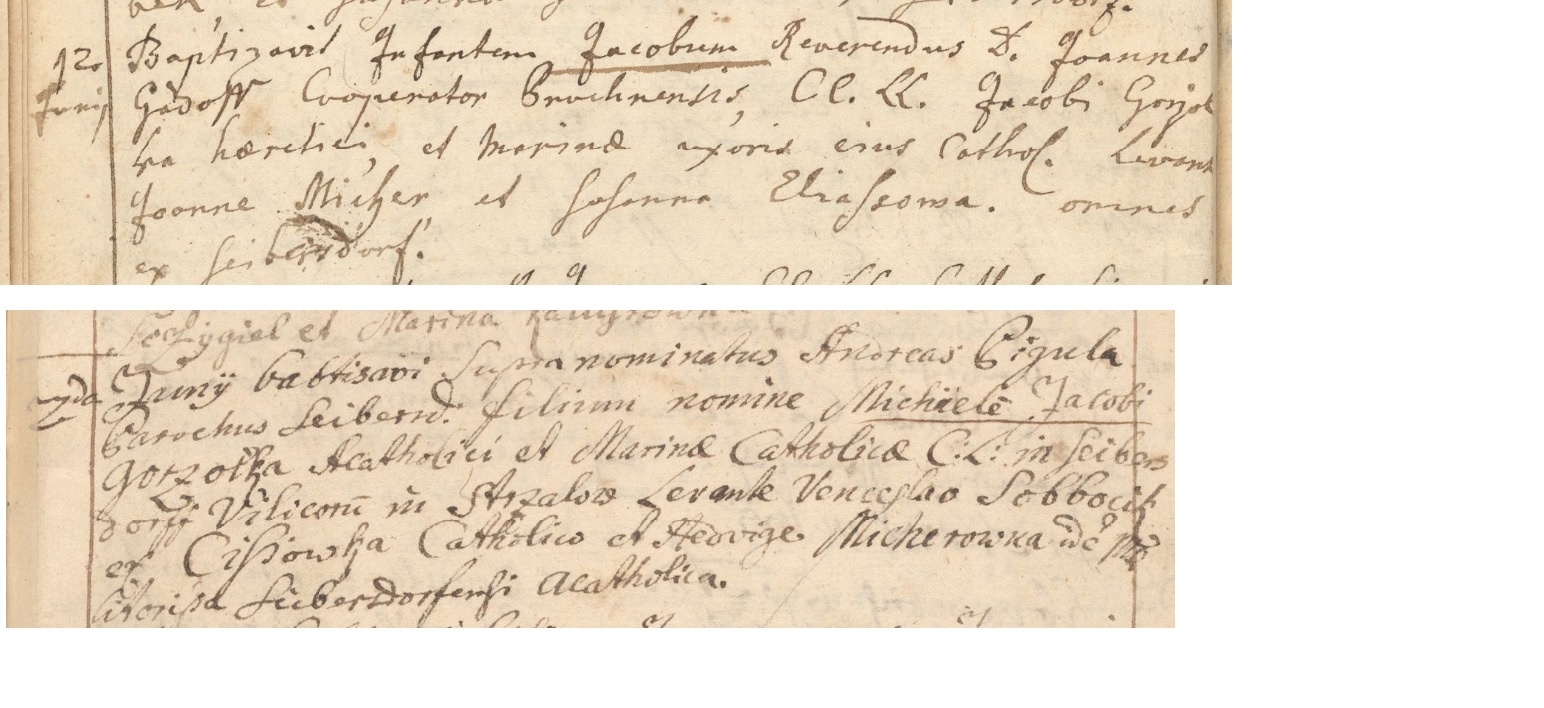 12 Baptizavit Infantem Jacobum Reverendus D. Joannes
Junij Gadoff Cooperator Pruchnensis, CC. LL. Jacobi Gorzol
ka hæretici, et Marinæ uxoris eius Cathol. Levant
Joanne Micher et Susanna Eliassowa. omnes
ex Seibersdorf.
et Marina
2da Junÿ baptisavi Supra nominatus Andreas Cigula
Parochus Seibersd: filium nomine Michäelē Jacobi
Gorzolka Acatholici et Marinæ Catholicæ C: L: in Seibers
dorff Vilicorū in Levante Venceslao Sobbocik
ex Cissowka Catholico et Hedvige Micherowna
Seibersdorfensi acatholica.